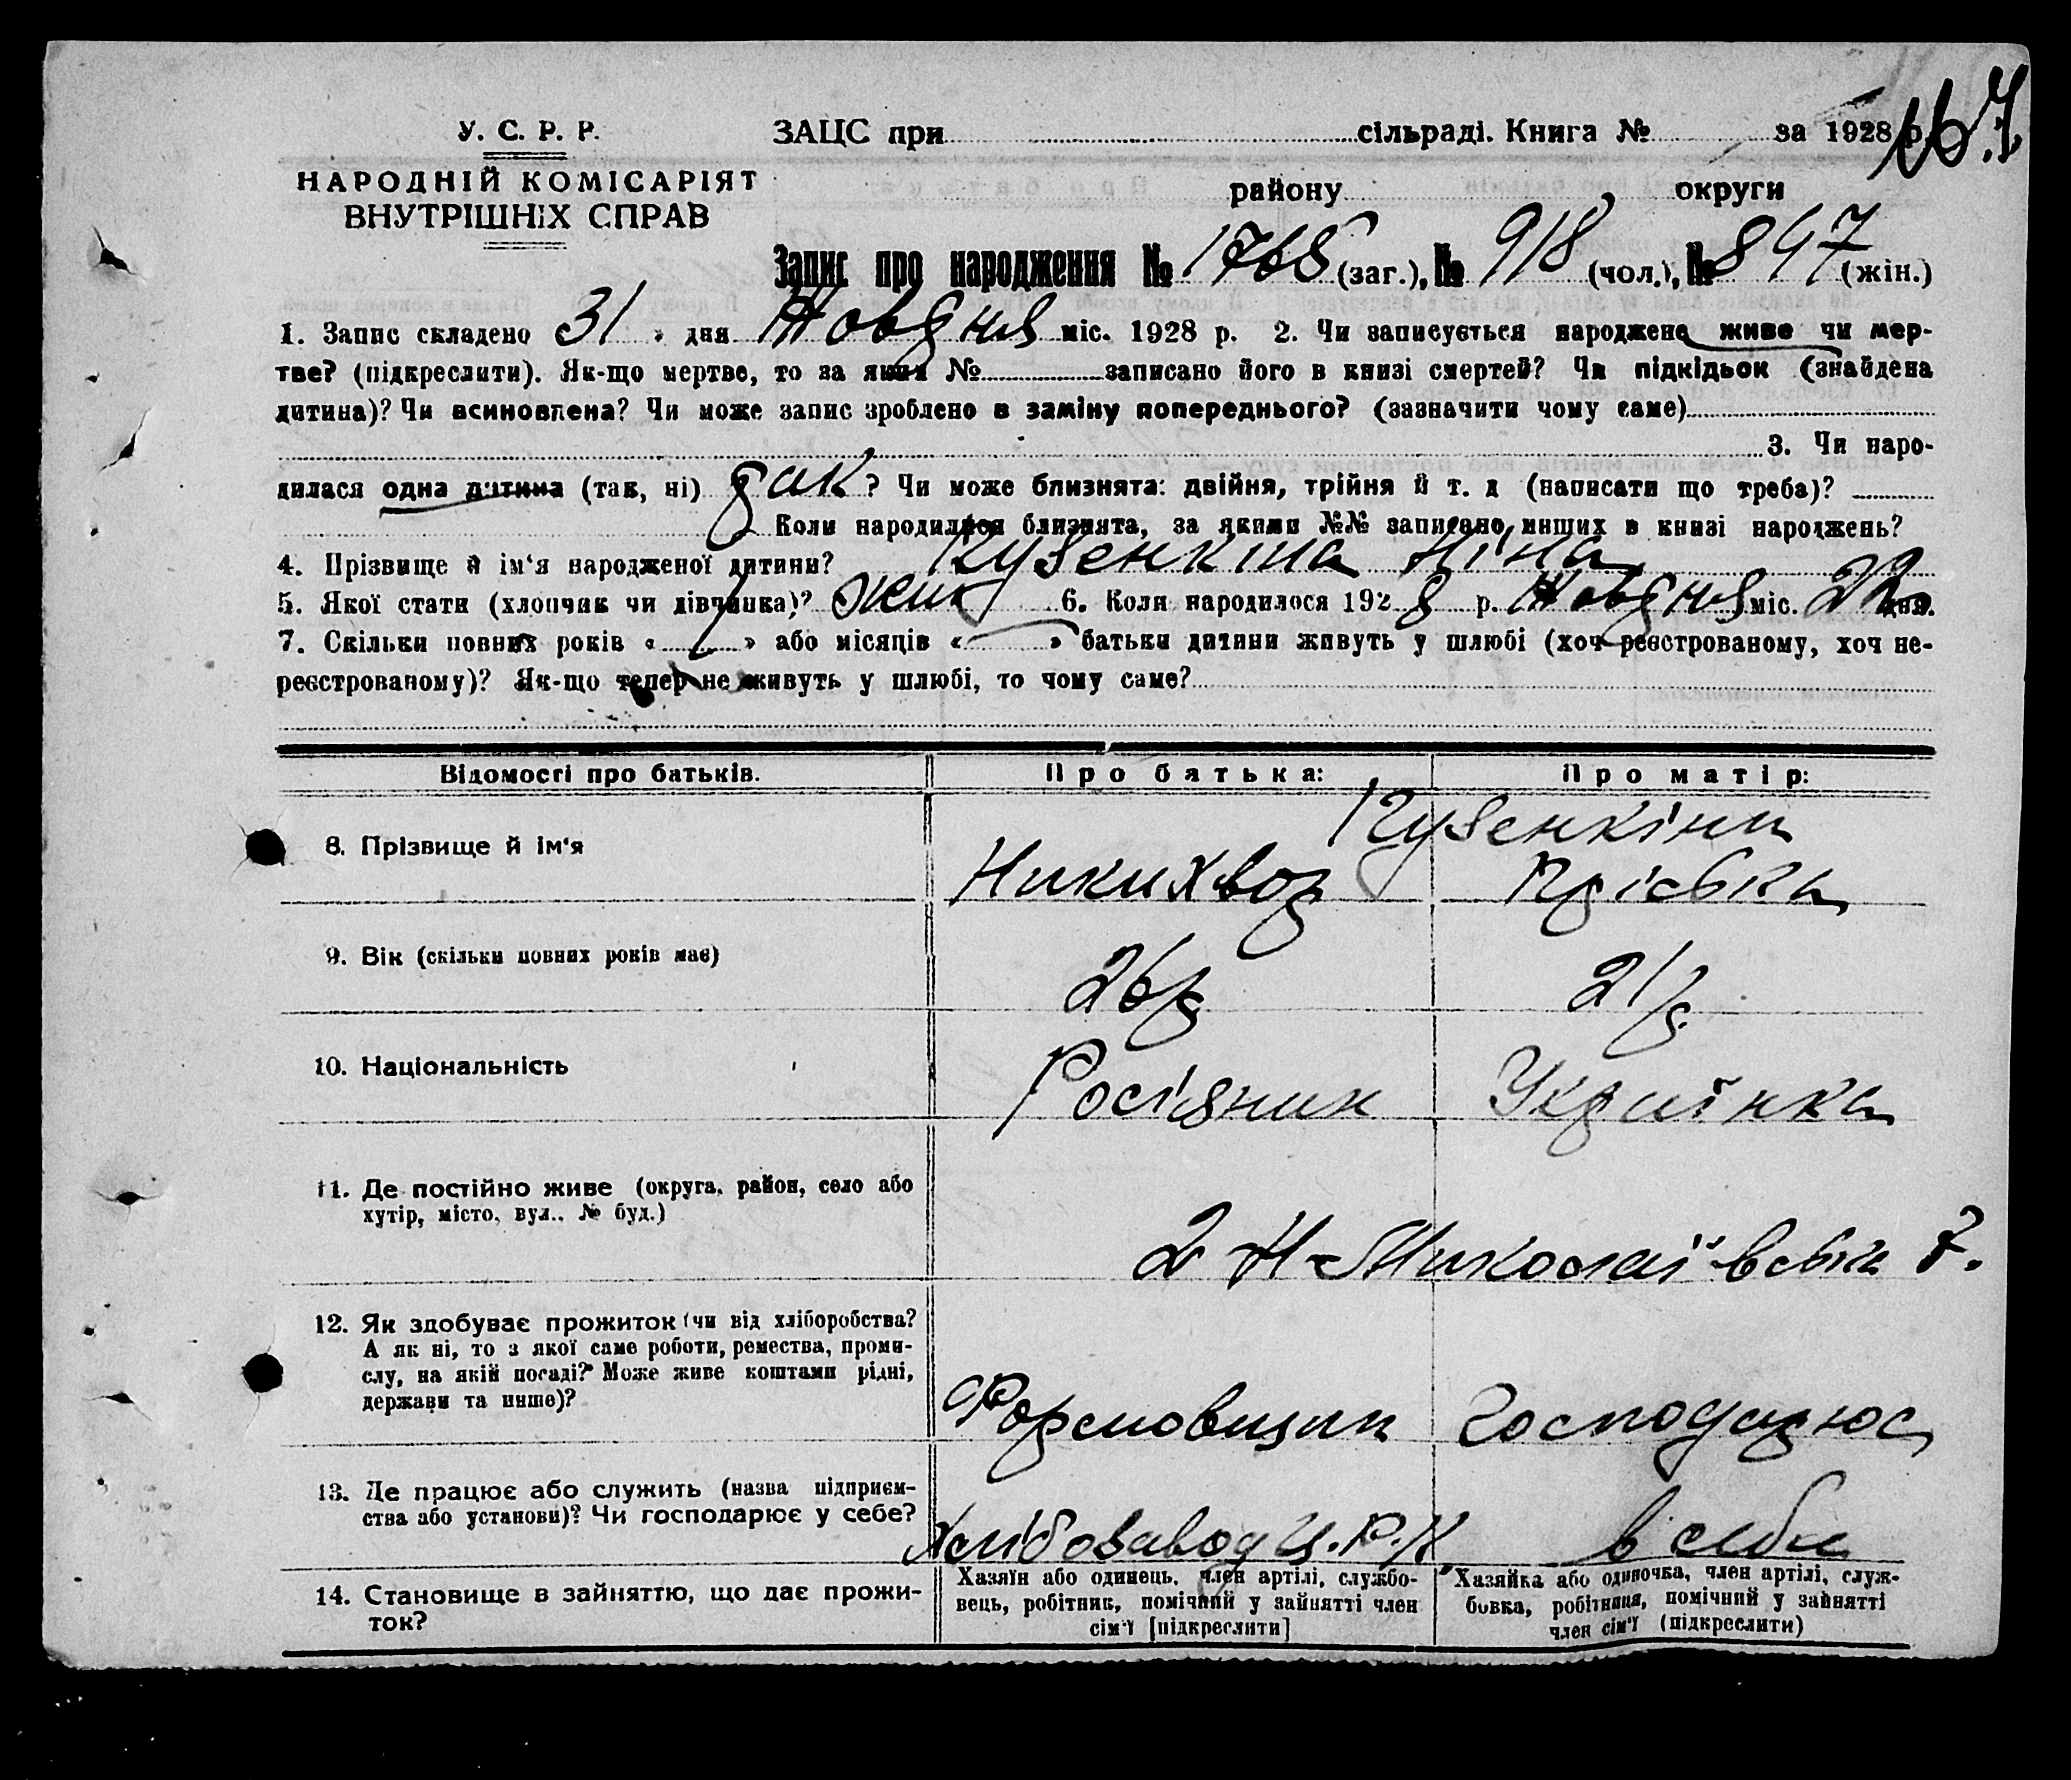 167.
У. С. Р. Р.
НАРОДНІЙ КОМІСАРІЯТ
ВНУТРІШНІХ СПРАВ
ЗАЦС при сільраді. Книга № за 1928 р.
району округи
Запис про народження № 1765 (заг.), № 918 (чол.), № 847 (жін.)
1. Запис складено 31 » дня Жовдня міс. 1928 р. 2. Чи записується народжене живе чи мер-
тве? (підкреслити). Як-що мертве, то за яким № записано його в книзі смертей? Чи підкідьок (знайдена
дитина)? Чи всиновлена? Чи може запис зроблено в заміну попереднього? (зазначити чому саме)
3. Чи наро-
дилася одна дитина (так, ні) так ? Чи може близнята: двійня, трійня й т. д (написати що треба)?
Коли народилися близнята, за якими №№ записано инших в книзі народжень?
4. Прізвище й ім‘я народженої дитини? Кузенкіна Ніна
5. Якої стати (хлопчик чи дівчинка)? жин 6. Коли народилося 1928 р. Жовдня міс. 22 дня.
7. Скільки повних років « » або місяців « » батьки дитини живуть у шлюбі (хоч реєстрованому, хоч не-
реєстрованому)? Як-що тепер не живуть у шлюбі, то чому саме?
Відомості про батьків. Про батька: Про матір:
Кузенкіни
8. Прізвище й ім‘я Никихвор Пріська
9. Вік (скільки повних років має) 26 р 21 р
10. Національність Росіянин Українка
11. Де постійно живе (округа, район, село або
хутір, місто, вул., № буд.)
2 Н-Миколаївська 7.
12. Як здобуває прожиток (чи від хліборобства?
А як ні, то з якої саме роботи, ремества, проми-
слу, на якій посаді? Може живе коштами рідні,
держави та инше)?
Формовщик Господарює
13. Де працює або служить (назва підприєм-
ства або установи)? Чи господарює у себе?
Хлібозавод Ц.Р.К в себе
14. Становище в зайняттю, що дає прожи-
ток?
Хазяїн або одинець, член артілі, службо-
вець, робітник, помічний у зайнятті член
сім'ї [підкреслити]
Хазяйка або одиночка, член артілі, служ-
бовка, робітниця, помічний у зайнятті
член сім'ї (підкреслити)